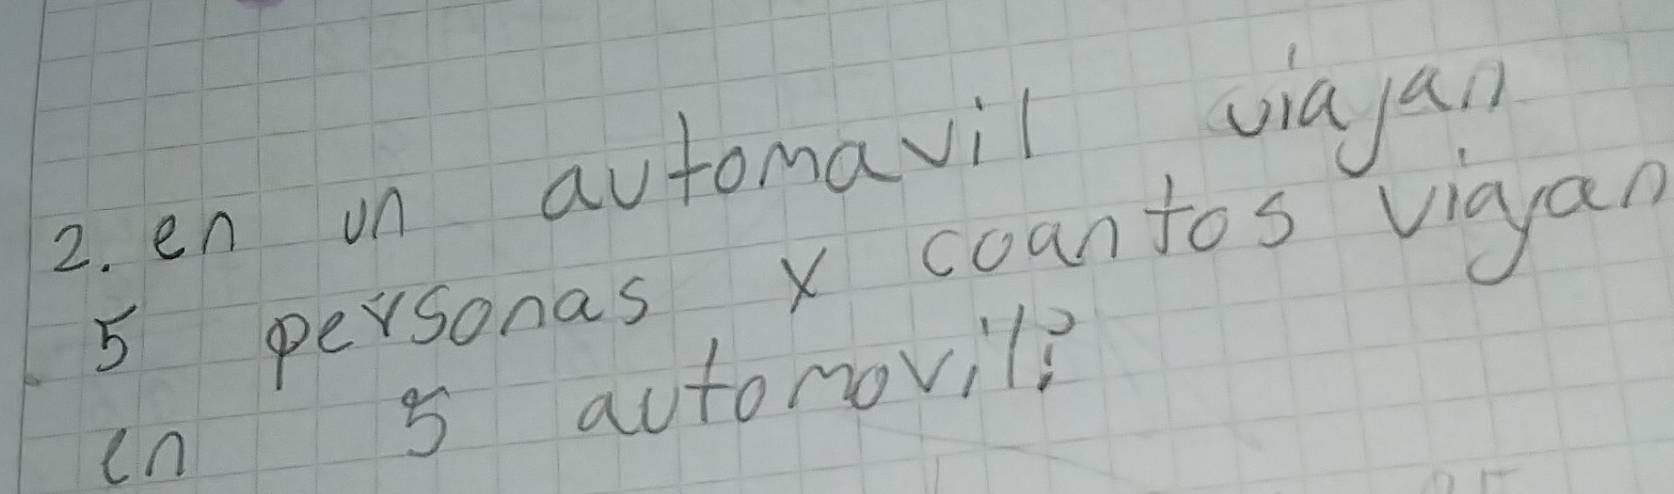 2. en un automavil viajan
5 personas x coantos viajan
en 5 automovil?